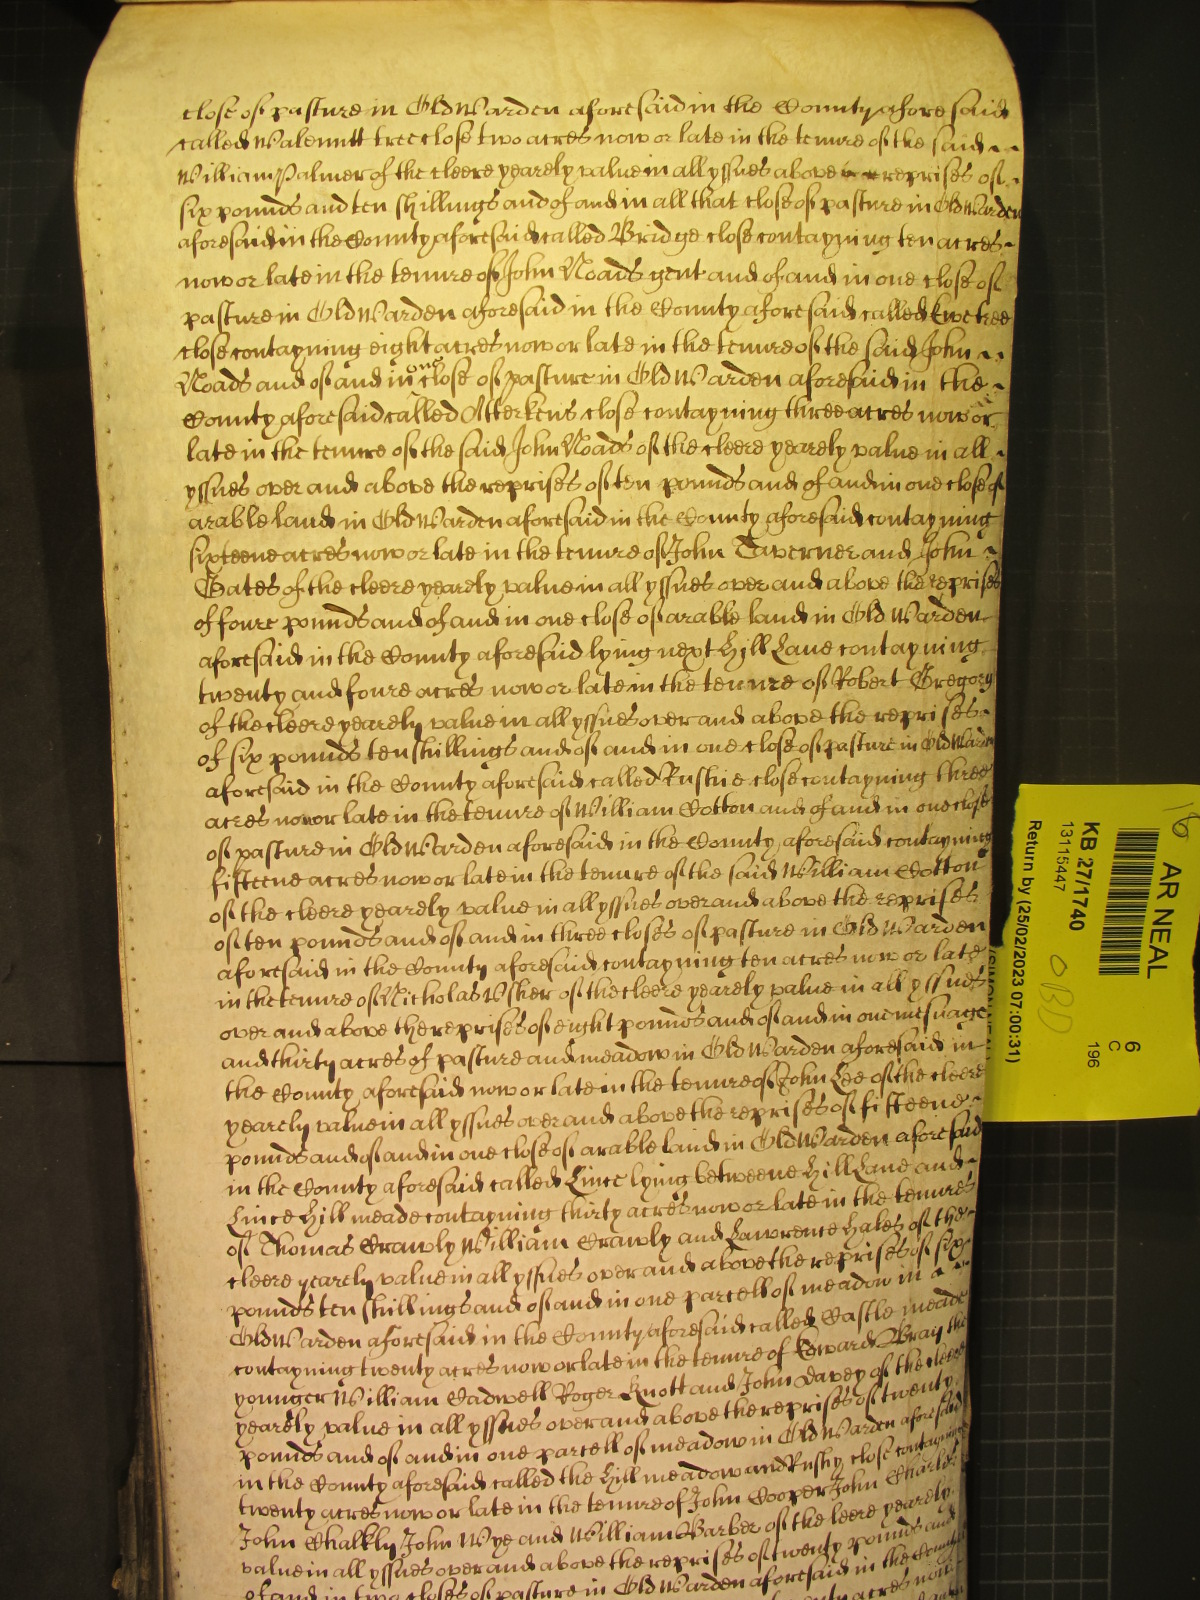 close of pasture in Old Warden aforesaid in the County aforesaid
called Walenutt tree close two acres now or late in the tenure of the said
William Palmer of the cleere yearely value in all yssues above reprises of
six pounds and ten shillings and of and in all that close of pasture in Old Warden
aforesaid in the County aforesaid called Bridge close contayning ten acres
now or late in the tenure of John Noads gent and of and in one close of
pasture in Old Warden aforesaid in the County aforesaid called Ewetree
close contayning eight acres now or late in the tenure of the said John
Noads and of and in one close of pasture in Old Warden aforesaid in the
County aforesaid called Atterkens close contayning three acres now or
late in the tenure of the said John Noads of the cleere yearely value in all
yssues over and above the reprises of ten pounds and of and in one close of
arable land in Old Warden aforesaid in the County aforesaid contayning
sixteene acres now or late in the tenure of John Taverner and John
Gates of the cleere yearely value in all yssues over and above the reprises
of foure pounds and of and in one close of arable land in Old Warden
aforesaid in the County aforesaid lying next Hill Lane contayning
twenty and foure acres now or late in the tenure of Robert Gregory
of the cleere yearely value in all yssues over and above the reprises
of six pounds ten shillings and of and in one close of pasture in Old Warden
aforesaid in the County aforesaid called Rushie close contayning three
acres now or late in the tenure of William Cotton and of and in one close
of pasture in Old Warden aforesaid in the County aforesaid contayning
fifteene acres now or late in the tenure of the said William Cotton
of the cleere yearely value in all yssues over and above the reprises
of ten pounds and of and in three closes of pasture in Old Warden
aforesaid in the County aforesaid contayning ten acres now or late
in the tenure of Nicholas Usher of the cleere yearely value in all yssues
over and above the reprises of eight pounds and of and in one mesuage
and thirty acres of pasture and meadow in Old Warden aforesaid in
the County aforesaid now or late in the tenure of John Lee of the cleere
yearely value in all yssues over and above the reprises of fifteene
pounds and of and in one close of arable land in Old Warden aforesaid
in the County aforesaid called Lince lying betweene Hill Lane and
Lince Hill meade contayning thirty acres now or late in the tenures
of Thomas Crawly William Crawly and Lawrence Hales of the
cleere yearely value in all yssues over and above the reprises of six
pounds ten shillings and of and in one parcell of meadow in
Old Warden aforesaid in the County aforesaid called Castle meade
contayning twenty acres now or late in the tenure of Edward Bray the
younger William Cadwell Roger Knott and John Davey of the cleere
yearely value in all yssues over and above the reprises of twenty
pounds and of and in one parcell of meadow in Old Warden aforesaid
in the County aforesaid called the Hill meadow and Rushy close contayning
twenty acres now or late in the tenure of John Cooper John Charles
John Chalkly John Wye and William Barber of the leere yearely
value in all yssues over and above the reprises of twenty pounds and
of and in two closes of pasture in Old Warden aforesaid in the County
acres now
AR NEAL
KB 27/1740
13115447
Return by (25/02/2023 07:00:31)
6
C
196
16
OBD